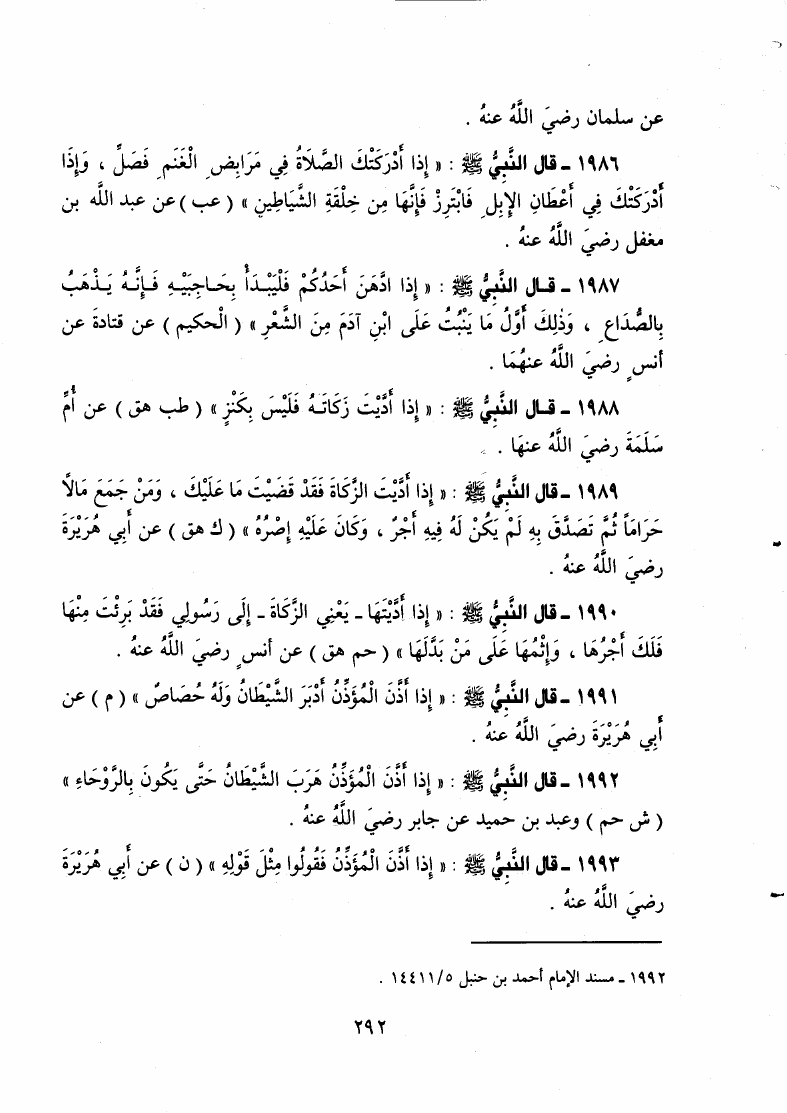 عن سلمان رضيَ اللَّهُ عنهُ .
١٩٨٦ ـ قال النَّبِيُّ ﷺ : « إِذا أَدْرَكَتْكَ الصَّلَاةُ فِي مَرَابِضِ الْغَنَمِ فَصَلِّ ، وَإِذَا
أَدْرَكَتْكَ فِي أَعْطَانِ الإِبِلِ فَابْتَرِزْ فَإِنَّهَا مِن خِلْقَةِ الشَّيَاطِينِ » ( عب ) عن عبد اللَّه بن
مغفل رضيَ اللَّهُ عنهُ .
١٩٨٧ ـ قـال النَّبِيُّ ﷺ : « إِذا ادَّهَنَ أَحَدُكُمْ فَلْيَبْدَأْ بِحَـاجِبَيْـهِ فَـإِنَّـهُ يَـذْهَبُ
بِالصُّدَاعِ ، وَذٰلِكَ أَوَّلُ مَا يَنْبُتُ عَلَى ابْنِ آدَمَ مِنَ الشَّعْرِ » ( الْحكيم ) عن قتادةَ عن
أنسٍ رضيَ اللَّهُ عنهُمَا .
١٩٨٨ ـ قـال النَّبِيُّ ﷺ : « إِذا أَدَّيْتَ زَكَاتَـهُ فَلَيْسَ بِكَنْزٍ » ( طب هق ) عن أُمِّ
سَلَمَةَ رضيَ اللَّهُ عنهَا .
١٩٨٩ ـ قال النَّبِيُّ ﷺ : « إِذا أَدَّيْتَ الزَّكَاةَ فَقَدْ قَضَيْتَ مَا عَلَيْكَ ، وَمَنْ جَمَعَ مَالًا
حَرَاماً ثُمَّ تَصَدَّقَ بِهِ لَمْ يَكُنْ لَهُ فِيهِ أَجْرٌ ، وَكَانَ عَلَيْهِ إِصْرُهُ » ( ك هق ) عن أَبي هُرَيْرَةَ
رضيَ اللَّهُ عنهُ .
١٩٩٠ ـ قال النَّبِيُّ ﷺ : « إِذا أَدَّيْتَهَا ـ يَعْنِي الزَّكَاةَ ـ إِلَى رَسُولِي فَقَدْ بَرِئْتَ مِنْهَا
فَلَكَ أَجْرُهَا ، وَإِثْمُهَا عَلَى مَنْ بَدَّلَهَا » ( حم هق ) عن أنسٍ رضيَ اللَّهُ عنهُ .
١٩٩١ ـ قال النَّبِيُّ ﷺ : « إِذا أَذَّنَ الْمُؤَذِّنُ أَدْبَرَ الشَّيْطَانُ وَلَهُ حُصَاصٌ » ( م ) عن
أَبِي هُرَيْرَةَ رضيَ اللَّهُ عنهُ .
١٩٩٢ ـ قال النَّبِيُّ ﷺ : « إِذا أَذَّنَ الْمُؤَذِّنُ هَرَبَ الشَّيْطَانُ حَتَّى يَكُونَ بِالرَّوْحَاءِ »
( ش حم ) وعبد بن حميد عن جابر رضيَ اللَّهُ عنهُ .
١٩٩٣ ـ قال النَّبِيُّ ﷺ : « إِذا أَذَّنَ الْمُؤَذِّنُ فَقُولُوا مِثْلَ قَوْلِهِ » ( ن ) عن أَبي هُرَيْرَةَ
رضيَ اللَّهُ عنهُ .
١٩٩٢ ـ مسند الإمام أحمد بن حنبل ١٤٤١١/٥ .
٢٩٢